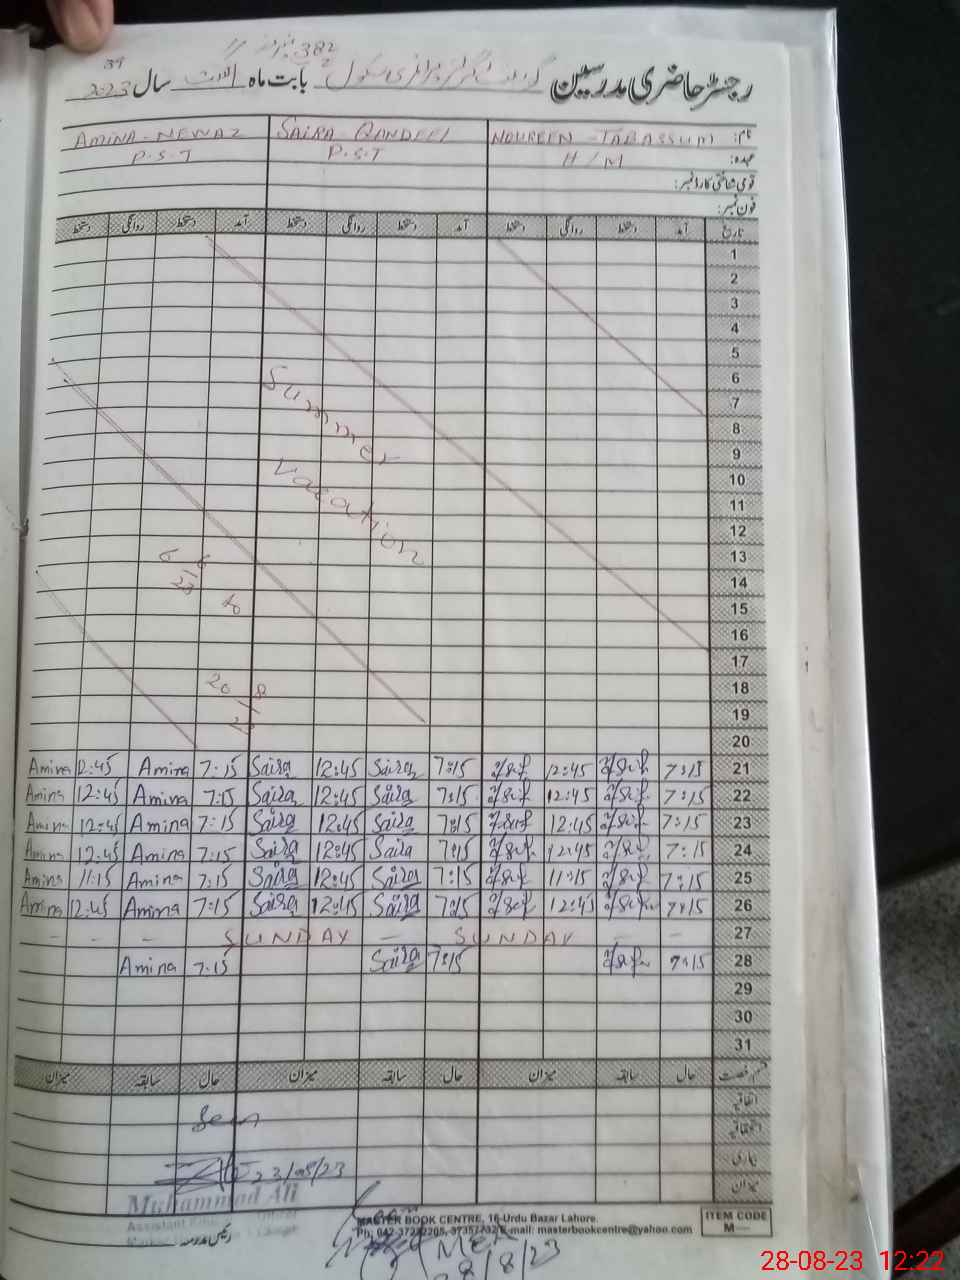 382
39
رجسٹر حاضری مدرسین گورنمنٹ گرلز پرائمری سکول بابت ماہ اگست سال 2023
نام: NOUREEN - TABASSUM SAIRA - QANDEEL AMINA - NEWAZ
عہدہ: H/M P.S.T P.S.T
قومی شناختی کارڈ نمبر:
فون نمبر:
تاریخ آمد دستخط روانگی دستخط آمد دستخط روانگی دستخط آمد دستخط روانگی دستخط
1
2
3
4
5
6
7
8
9
10
11
12
13
14
15
16
17
18
19
20
Summer
Vacation
6 6/23 to
20 8/23
Amina 12:45 Amina 7:15 Saira 12:45 Saira 7:15 12:45 7:15 21
Amina 12:45 Amina 7:15 Saira 12:45 Saira 7:15 12:45 7:15 22
Amina 12:45 Amina 7:15 Saira 12:45 Saira 7:15 12:45 7:15 23
Amina 12:45 Amina 7:15 Saira 12:45 Saira 7:15 12:45 7:15 24
Amina 11:15 Amina 7:15 Saira 12:45 Saira 7:15 11:15 7:15 25
Amina 12:45 Amina 7:15 Saira 12:45 Saira 7:15 12:45 7:15 26
- - - SUNDAY - SUNDAY - - 27
Amina 7:15 Saira 7:15 7:15 28
29
30
31
قسم رخصت حال سابقہ میزان حال سابقہ میزان حال سابقہ میزان
اتفاقیہ
استحقاقیہ
بیماری
میزان
Seen
23/08/23
Muhammad Ali
Assistant
رئیس مدرسہ
MASTER BOOK CENTRE, 16-Urdu Bazar Lahore.
Ph: 042-37232205, 37357732 E-mail: masterbookcentre@yahoo.com
ITEM CODE
M—
28/8/23
28-08-23 12:22